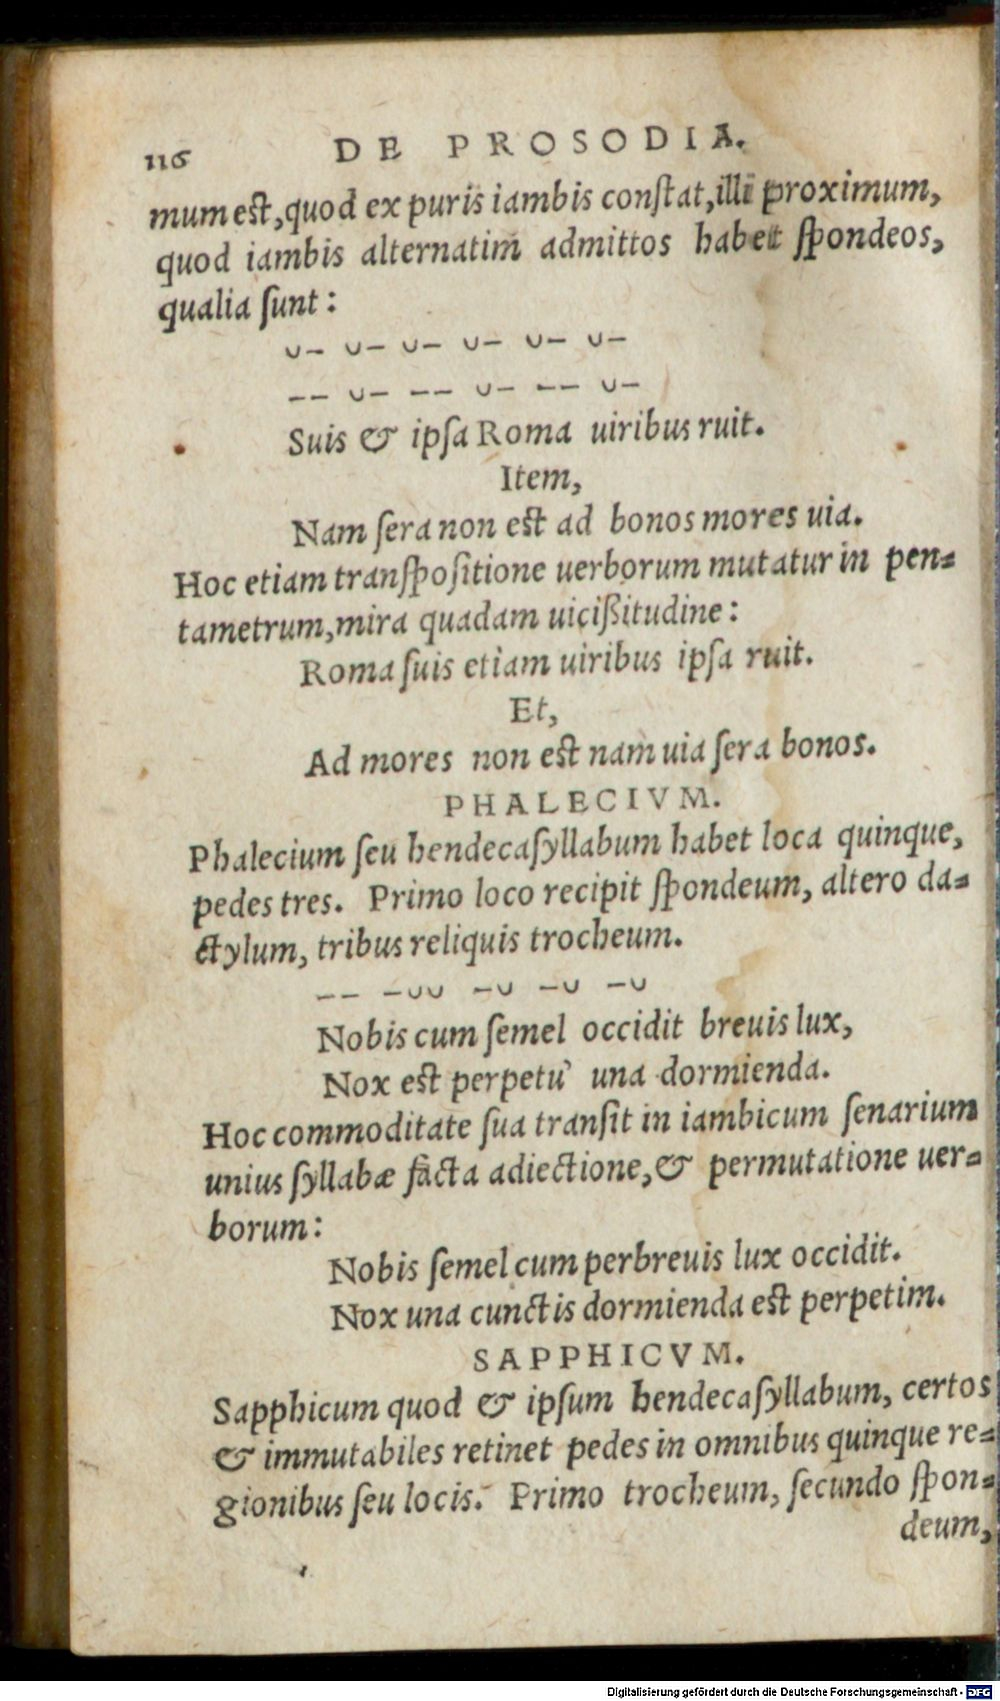 116 DE PROSODIA.
mum est, quod ex puris iambis conſtat, illi proximum,
quod iambis alternatim admittos habet ſpondeos,
qualia ſunt:
∪– ∪– ∪– ∪– ∪– ∪–
–– ∪– –– ∪– –– ∪–
Suis & ipſa Roma uiribus ruit.
Item,
Nam ſera non est ad bonos mores uia.
Hoc etiam tranſpoſitione uerborum mutatur in pen-
tametrum, mira quadam uicißitudine:
Roma ſuis etiam uiribus ipſa ruit.
Et,
Ad mores non est nam uia ſera bonos.
PHALECIVM.
Phalecium ſeu hendecaſyllabum habet loca quinque,
pedes tres. Primo loco recipit ſpondeum, altero da-
ctylum, tribus reliquis trocheum.
–– –∪∪ –∪ –∪ –∪
Nobis cum ſemel occidit breuis lux,
Nox est perpetu' una dormienda.
Hoc commoditate ſua tranſit in iambicum ſenarium
unius ſyllabæ facta adiectione, & permutatione uer-
borum:
Nobis ſemel cum perbreuis lux occidit.
Nox una cunctis dormienda est perpetim.
SAPPHICVM.
Sapphicum quod & ipſum hendecaſyllabum, certos
& immutabiles retinet pedes in omnibus quinque re-
gionibus ſeu locis. Primo trocheum, ſecundo ſpon-
deum,
Digitalisierung gefördert durch die Deutsche Forschungsgemeinschaft - DFG